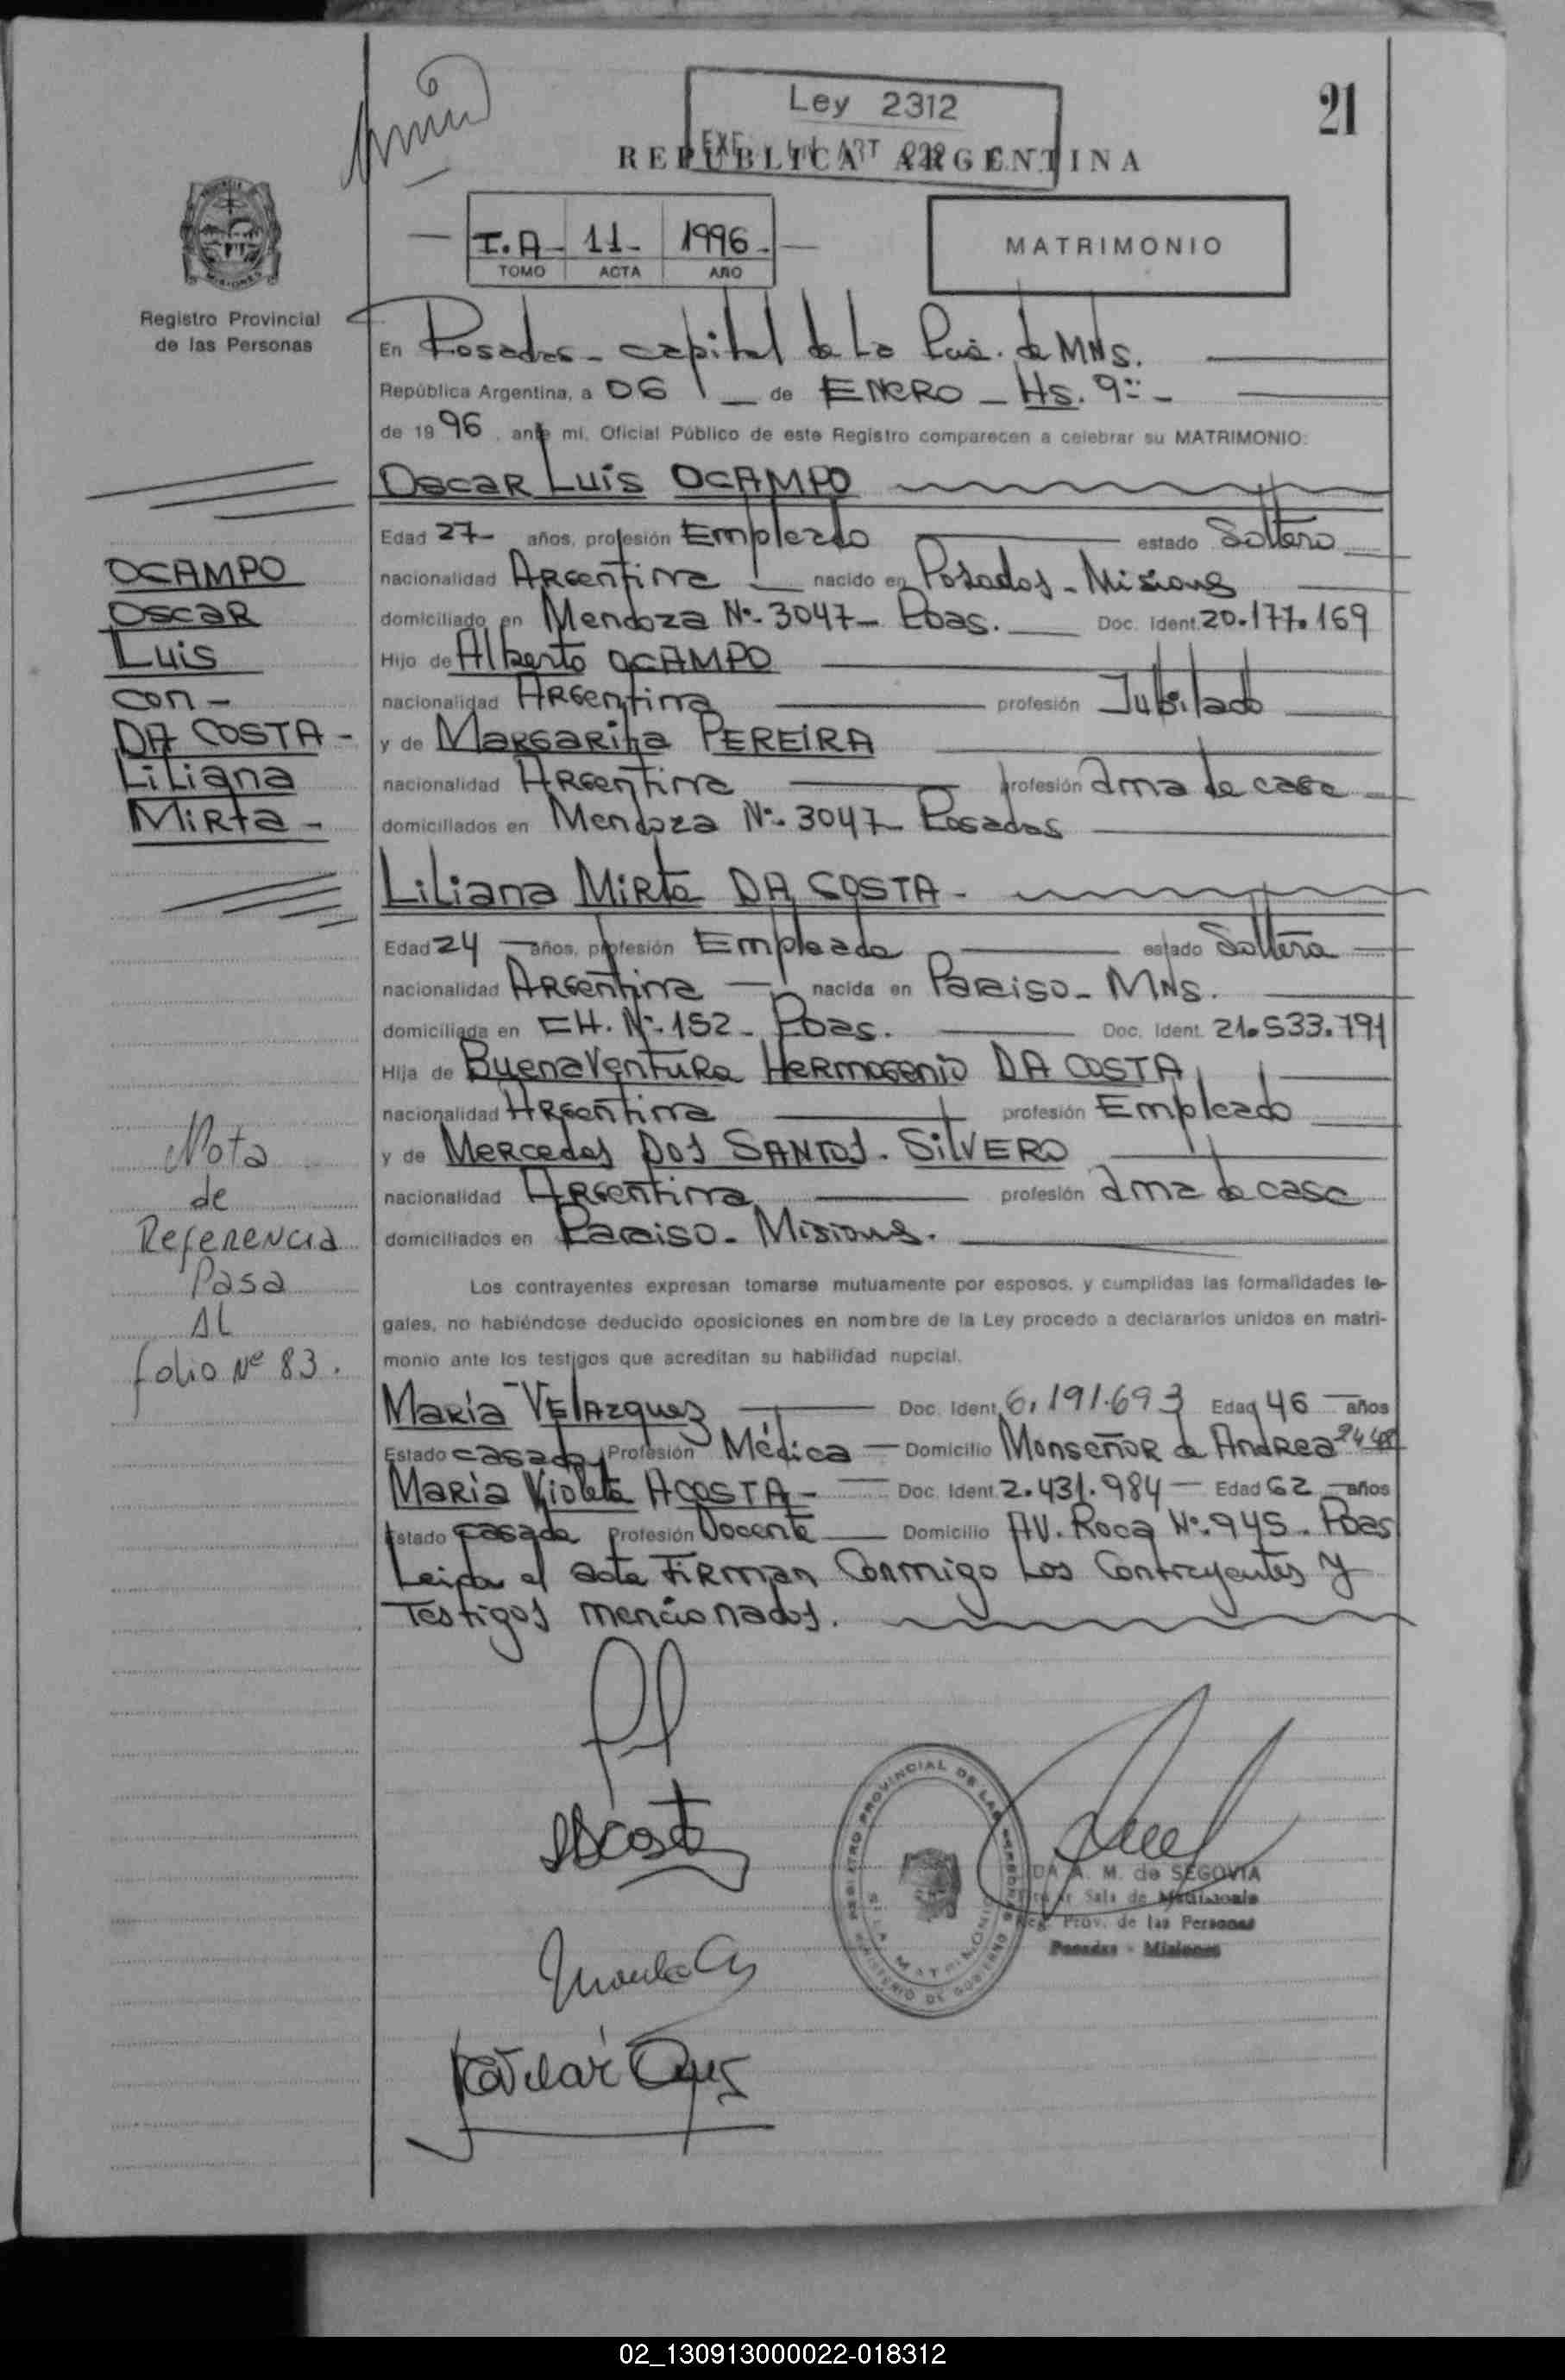 21
Ley 2312
EXE ART
REPUBLICA ARGENTINA
T.A- 11- 1996-
TOMO ACTA AÑO
MATRIMONIO
Registro Provincial
de las Personas
En Posadas - capital de La de MNs.
República Argentina, a 06 de ENERO - Hs. 9:-
de 1996, ante mí, Oficial Público de este Registro comparecen a celebrar su MATRIMONIO:
Oscar Luis OCAMPO
Edad 27- años, profesión Empleado estado Soltero
nacionalidad Argentina nacido en Posadas - Misiones
domiciliado en Mendoza Nº- 3047- Pdas. Doc. Ident. 20.177.169
Hijo de Alberto OCAMPO
nacionalidad Argentina profesión Jubilado
y de Margarita PEREIRA
nacionalidad Argentina profesión ama de casa
domiciliados en Mendoza Nº- 3047- Posadas
OCAMPO
Oscar
Luis
con -
DA COSTA -
Liliana
Mirta -
Liliana Mirta DA COSTA -
Edad 24 - años, profesión Empleada estado Soltera
nacionalidad Argentina nacida en Paraiso - MNs.
domiciliada en CH. Nº- 152- Pdas. Doc. Ident. 21.533.791
Hija de Buenaventura Hermogenio DA COSTA
nacionalidad Argentina profesión Empleado
y de Mercedes DOS SANTOS - SILVERO
nacionalidad Argentina profesión ama de casa
domiciliados en Paraiso - Misiones.
Nota
de
Referencia
Pasa
AL
folio Nº 83.
Los contrayentes expresan tomarse mutuamente por esposos, y cumplidas las formalidades le-
gales, no habiéndose deducido oposiciones en nombre de la Ley procedo a declararlos unidos en matri-
monio ante los testigos que acreditan su habilidad nupcial.
María Velazquez Doc. Ident. 6.191.693 Edad 46 años
Estado casada Profesión Médica - Domicilio Monseñor de Andrea
María Violeta ACOSTA - Doc. Ident. 2.431.984 - Edad 62 - años
Estado casada Profesión Docente Domicilio AV. Roca Nº- 945 - Pdas
Leida el acta firman conmigo Los Contrayentes y
Testigos mencionados.
REGISTRO PROVINCIAL DE LAS PERSONAS
SALA MATRIMONIO
MINISTERIO DE GOBIERNO
A. M. de SEGOVIA
Sala de Matrimonio
Reg. Prov. de las Personas
Posadas - Misiones
02_130913000022-018312